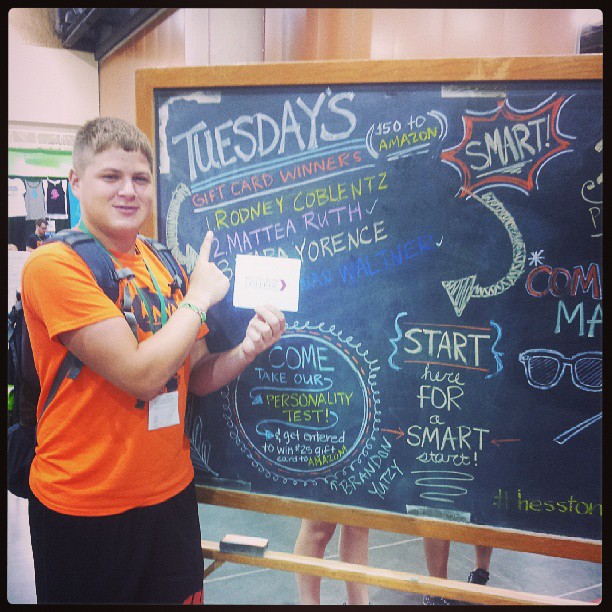 TUESDAY'S
GIFT CARD WINNERS
($50 to
AMAZON)
1 RODNEY COBLENTZ
2 MATTEA RUTH ✓
3 YORENCE
WALTNER ✓
SMART!
COME
TAKE OUR
PERSONALITY
TEST!
& get entered
to win $25 gift
card to AMAZON
BRANDON
YUTZY
{START}
here
FOR
a
SMART
start!
COM
MA
#hesston